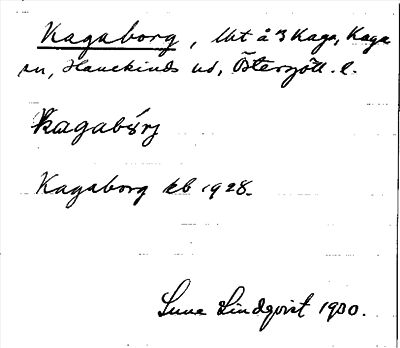 Kagaborg, lht å 3 Kaga, Kaga
sn, Hanekinds hd, Östergötl. l.
Kagabórj
Kagaborg kb 1928.
Sune Lindqvist 1930.